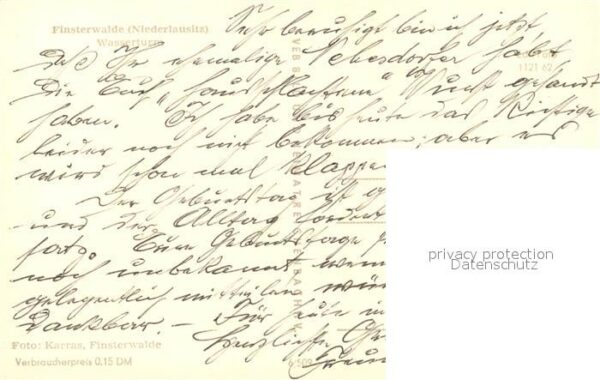 Finsterwalde (Niederlausitz)
Wasserturm
Sehr beruhigt bin ich jetzt
daß Ihr ehemalige habt
die Euch "hausschlachtene" Wurst gesandt
haben. Ich habe bis heute das Richtige
leider noch nicht bekommen; aber es
wird schon mal klappen
Der Geburtstag ist
und der Alltag fordert
Eure Geburtstage
noch unbekannt, wenn
gelegentlich mitteilen
dankbar. – Für heute
Herzliche
Foto: Karras, Finsterwalde
Verbraucherpreis 0,15 DM
1121 62
privacy protection
Datenschutz